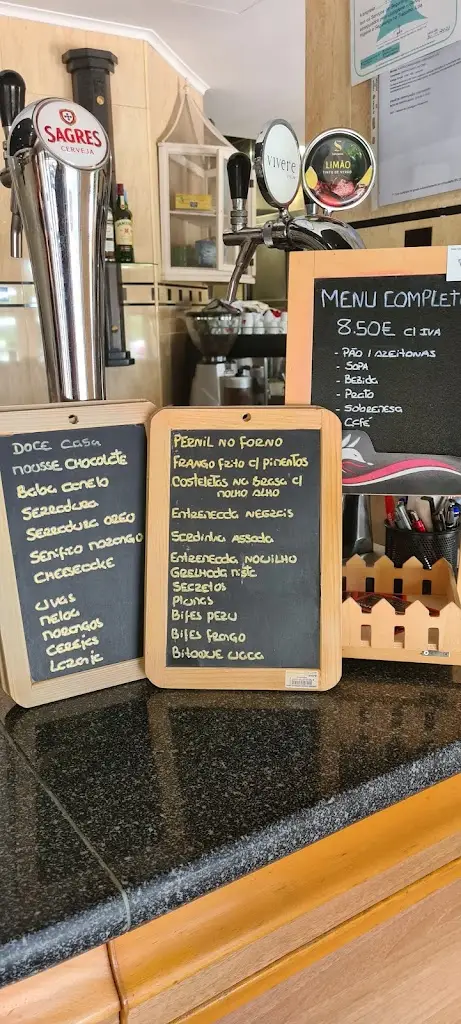 SAGRES
CERVEJA
VIVERE
LIMÃO
MENU COMPLET
8.50€ C/ IVA
- PÃO / AZEITONAS
- SOPA
- BEBIDA
- PRATO
- SOBREMESA
CAFÉ
DOCE CASA
MOUSSE CHOCOLATE
BABA CAMELO
SERRADURA
SERRADURA OREO
SEMIFRIO MORANGO
CHEESECAKE
UVAS
MELOA
MORANGOS
CEREJAS
LARANJA
PERNIL NO FORNO
FRANGO FRITO C/ PIMENTOS
COSTELETAS NA BRASA C/
MOLHO ALHO
ENTREMEADA NEGRAIS
SARDINHA ASSADA
ENTREMEADA NOVILHO
GRELHADA MISTA
SECRETOS
PLUMAS
BIFES PERU
BIFES FRANGO
BITOQUE VACA